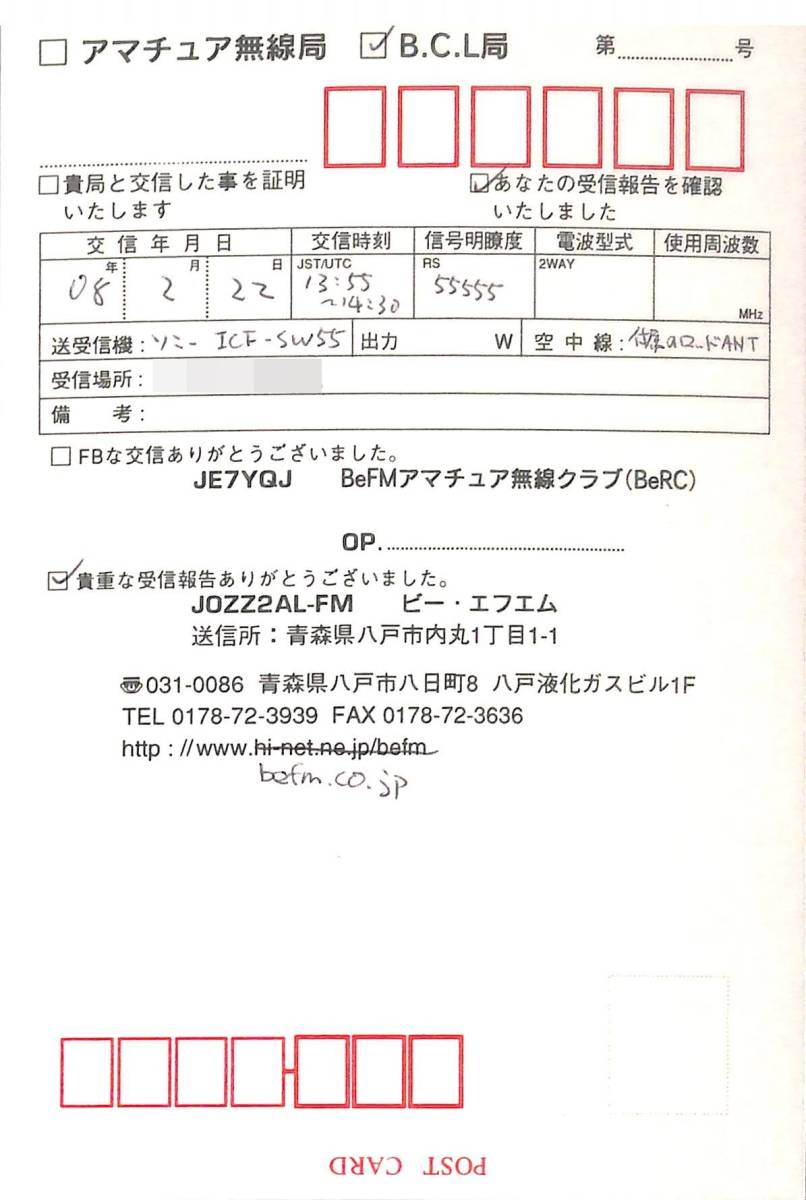 □ アマチュア無線局 ☑ B.C.L局 第 号
□貴局と交信した事を証明
いたします
☑あなたの受信報告を確認
いたしました
交信年月日 交信時刻 信号明瞭度 電波型式 使用周波数
年 月 日 JST/UTC RS 2WAY
08 2 22 13:55 55555
~14:30
MHz
送受信機:ソニー ICF-SW55 出力 W 空中線:付属のロードANT
受信場所:
備考:
□FBな交信ありがとうございました。
JE7YQJ BeFMアマチュア無線クラブ(BeRC)
OP.
☑貴重な受信報告ありがとうございました。
JOZZ2AL-FM ビー・エフエム
送信所:青森県八戸市内丸1丁目1-1
〠031-0086 青森県八戸市八日町8 八戸液化ガスビル1F
TEL 0178-72-3939 FAX 0178-72-3636
http://www.hi-net.ne.jp/befm
befm.co.jp
POST CARD